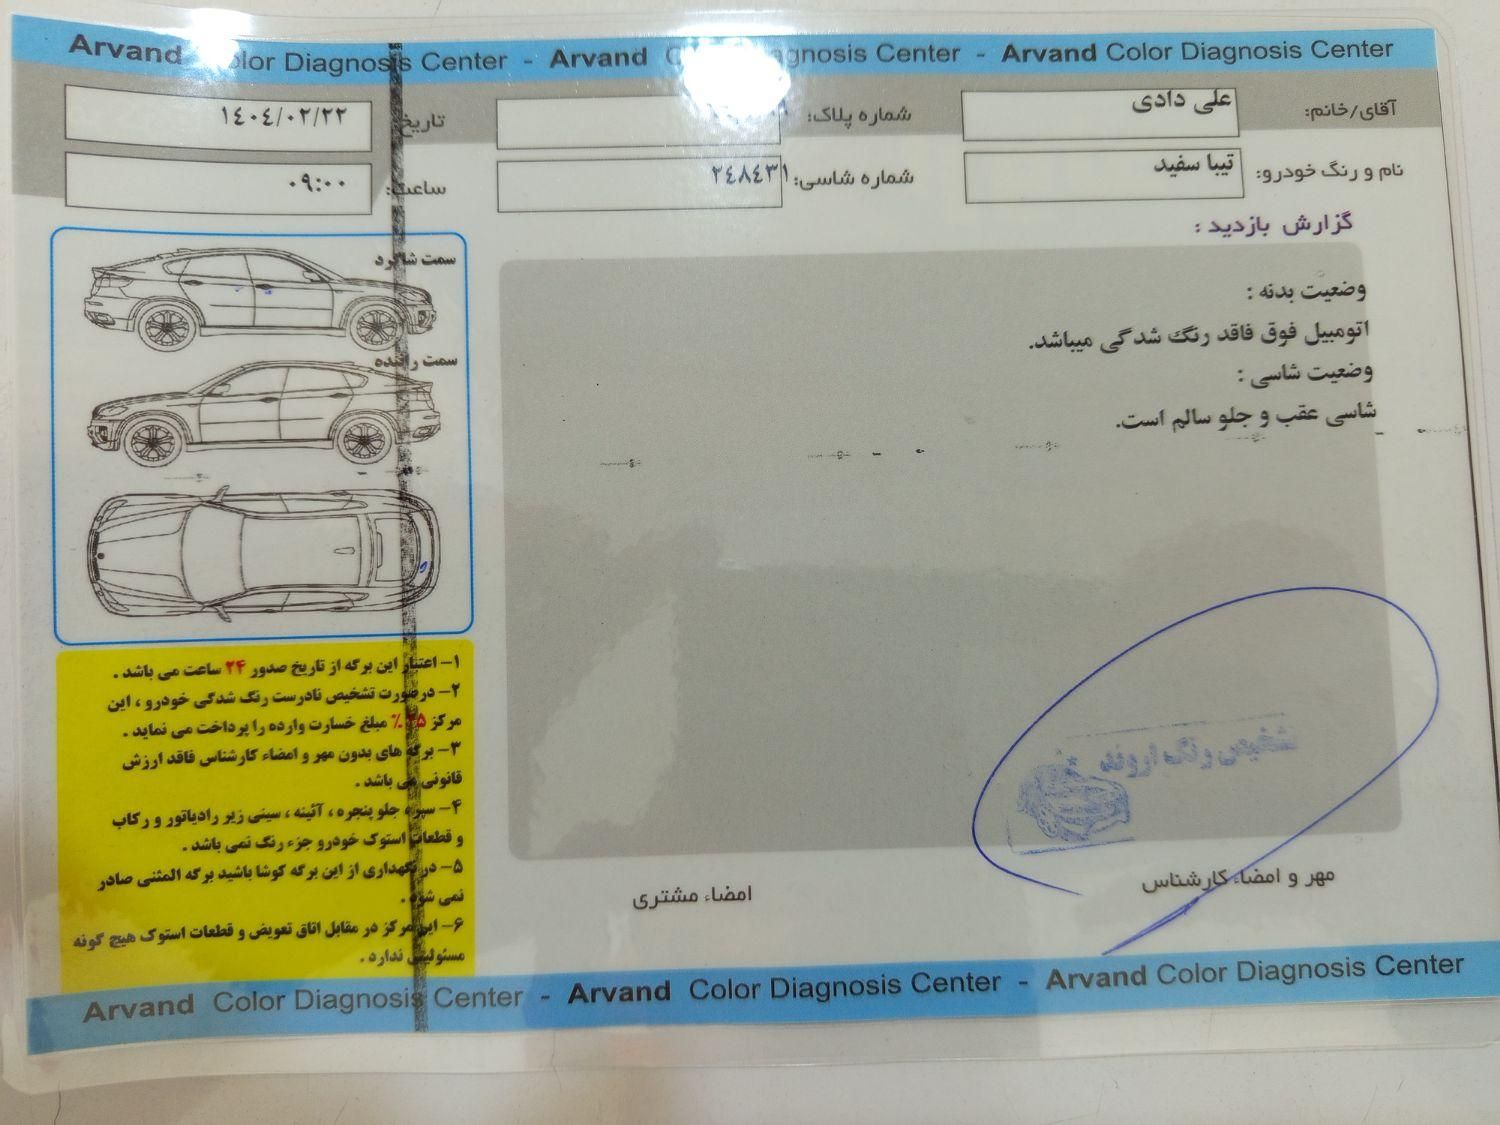 Arvand Color Diagnosis Center - Arvand Color Diagnosis Center - Arvand Color Diagnosis Center
آقای/خانم: علی دادی
شماره پلاک:
تاریخ: ۱۴۰۴/۰۲/۲۲
نام و رنگ خودرو: تیبا سفید
شماره شاسی: ۲۴۸۴۳۱
ساعت: ۰۹:۰۰
گزارش بازدید :
وضعیت بدنه :
اتومبیل فوق فاقد رنگ شدگی میباشد.
وضعیت شاسی :
شاسی عقب و جلو سالم است.
سمت شاگرد
سمت راننده
۱- اعتبار این برگه از تاریخ صدور ۲۴ ساعت می باشد .
۲- درصورت تشخیص نادرست رنگ شدگی خودرو ، این
مرکز ۲۵٪ مبلغ خسارت وارده را پرداخت می نماید .
۳- برگه های بدون مهر و امضاء کارشناس فاقد ارزش
قانونی می باشد .
۴- سپر، جلو پنجره ، آئینه ، سینی زیر رادیاتور و رکاب
و قطعات استوک خودرو جزء رنگ نمی باشد .
۵- در نگهداری از این برگه کوشا باشید برگه المثنی صادر
نمی شود .
۶- این مرکز در مقابل اتاق تعویض و قطعات استوک هیچ گونه
مسئولیتی ندارد .
تشخیص رنگ اروند
مهر و امضاء کارشناس
امضاء مشتری
Arvand Color Diagnosis Center - Arvand Color Diagnosis Center - Arvand Color Diagnosis Center